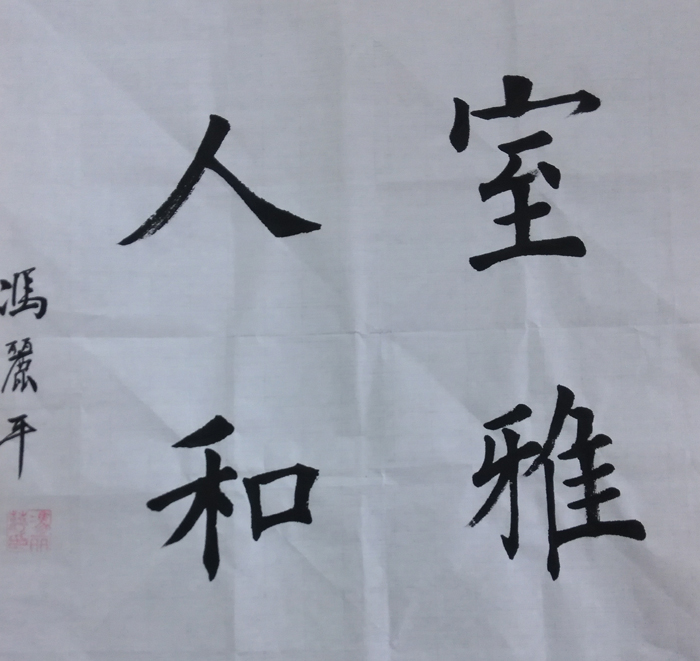 室雅
人和
馮麗平